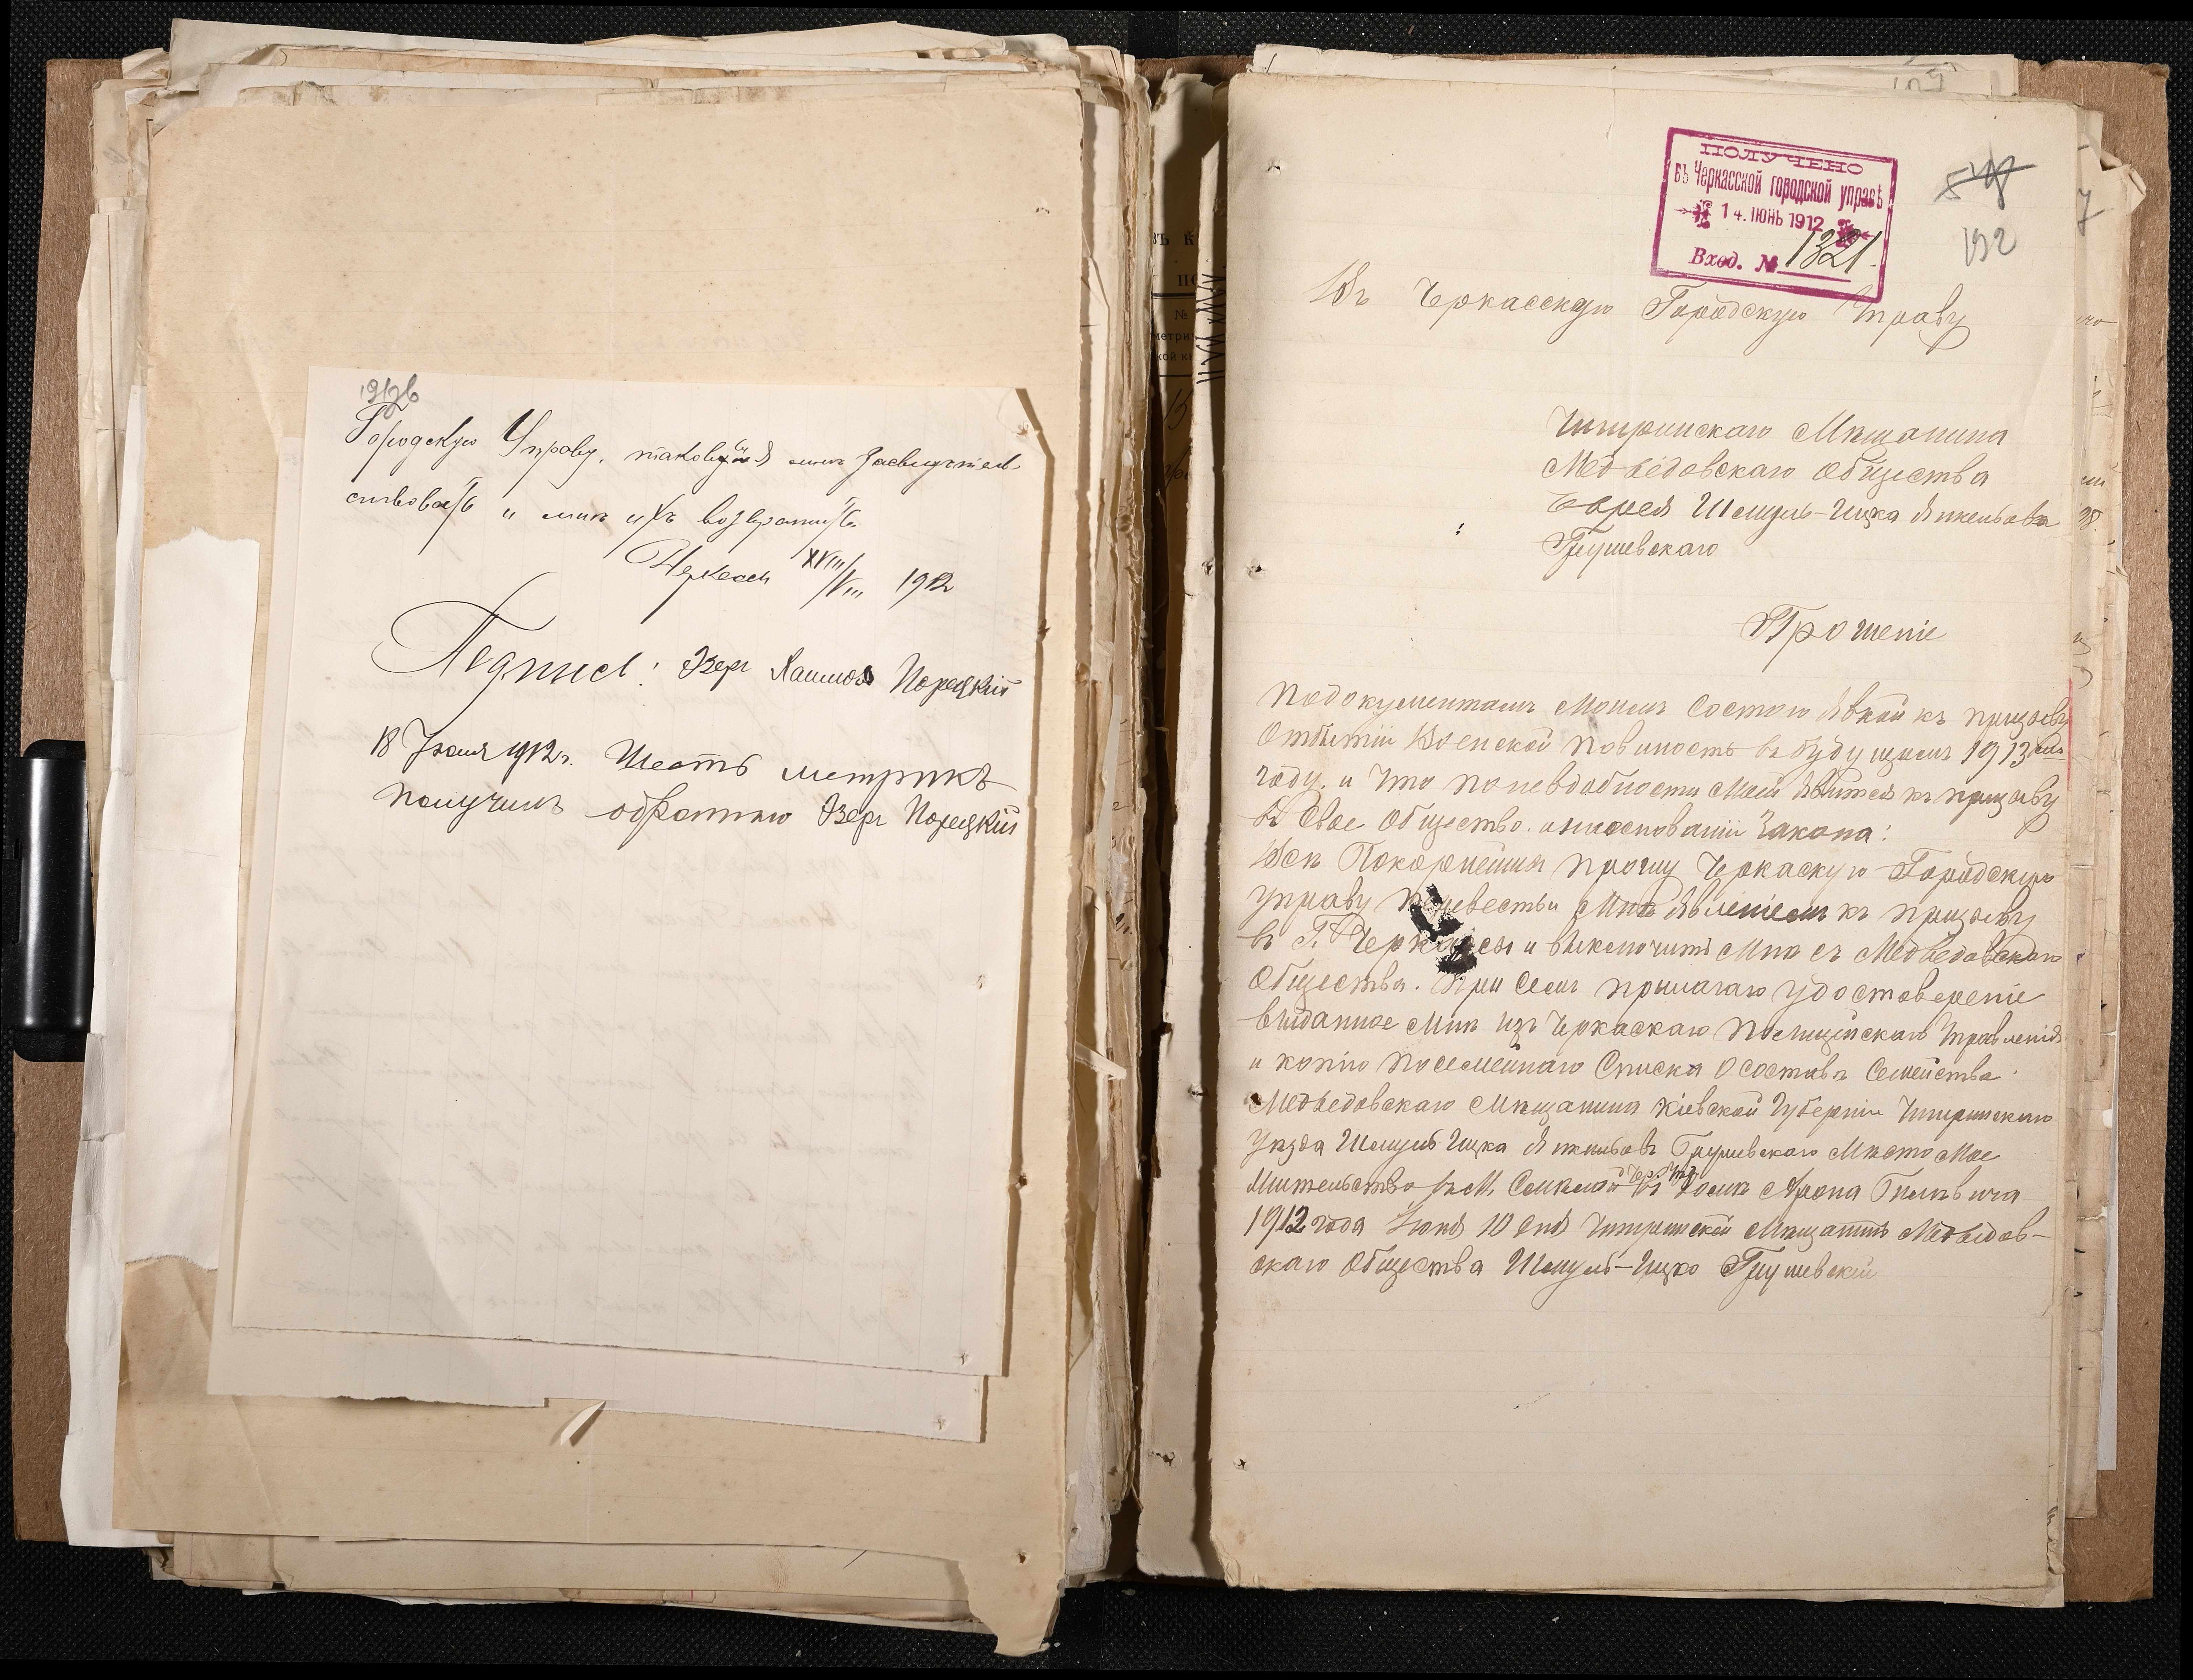 191об
Городскую Управу, таковые засвидетель
ствовать и мне их возвратить
Черкассы XVIII/VIII 1912
Подпись: Азер Хаимов Порецкій
18 Іюня 1912 г. Шесть метрикъ
получилъ обратно Азер Порецкій
ПОЛУЧЕНО
въ Черкасской городской управѣ
14. ІЮНЬ 1912
Вход. № 1321.
192
Въ Черкасскую Городскую Управу
Чигринскаго Мѣщанина
Медведовскаго Общества
Еврея Шмуль-Ицка Янкельова
Грушевскаго
Прошеніе
Подокументамъ Моимъ Состою Явкой къ призыву
Отбытіи Военской повиность въ будущемъ 1913 ем
году. и Что поневдобности Моей Явится къ призыву
в Свое Общество. наоснованіи Закона:
Всѣ Покорнейши прошу Черкаскую Городскую
управу перевести Мнѣ Явленіем къ призыву
въ Г. Черкассы и выключить Мнѣ съ Медведовскаго
Общества. При Семъ прилагаю удостовереніе
выданное Мнѣ изъ Черкаскаго Полицейскаго Управленія
и копію посемейнаго Списка О составѣ Семейства
Медведовскаго Мѣщанина Кіевской Губерніи Чигринскаго
уѣзда Шмуль Ицка Янкельовъ Грушевскаго Мѣсто Мое
Жительство въ М. Смѣлой Чер. Уѣз. въ домѣ Арона
1912 года Іюня 10 дня Чигринскій Мѣщанинъ Медведов-
скаго Общества Шмуль-Ицко Грушевскій